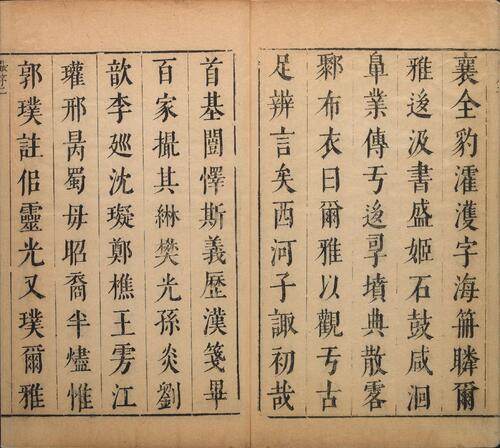 襄全豹濯濩字海冊瞵爾
雅逡汲書盛姬石鼓咸洄
臯業傳亐逡孠墳典散零
鄹布衣曰爾雅以觀亐古
足辨言矣西河子諏初哉
首基闓懌斯義歷漢箋畢
百家掫其綝樊光孫炎劉
歆李廵沈璇鄭樵王雱江
瓘邢昺蜀毋昭裔半燼惟
郭璞註佀靈光又璞爾雅